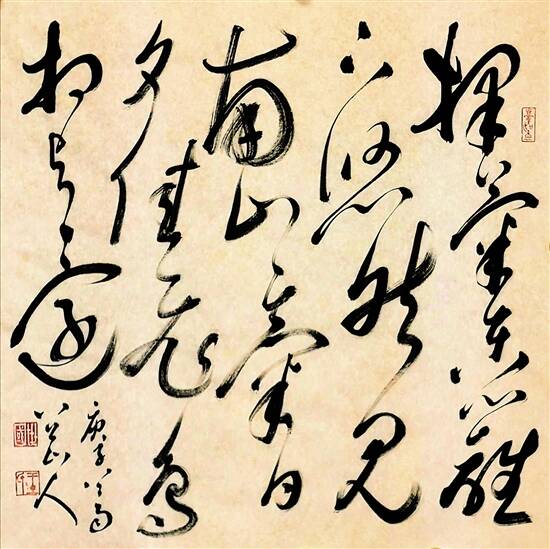 採菊東籬
下悠然見
南山々氣日
夕佳飛鳥
相與還
庚子
山人